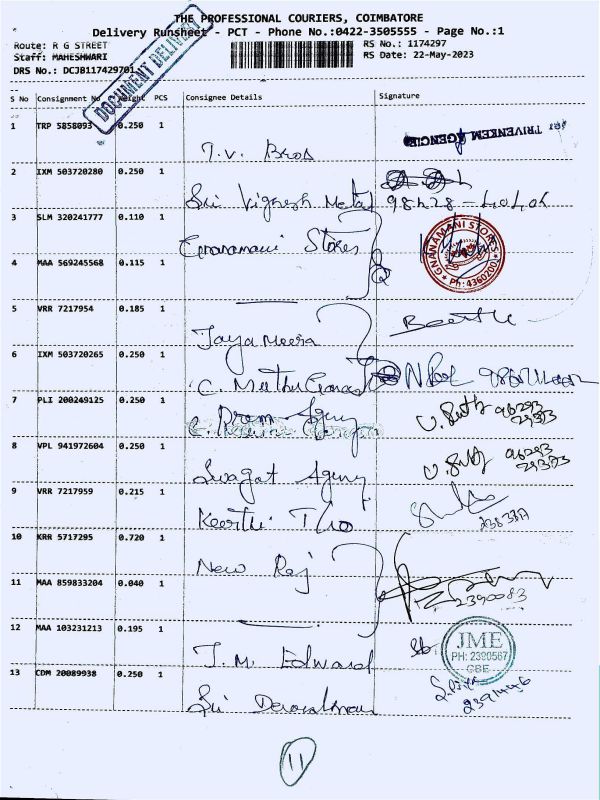 THE PROFESSIONAL COURIERS, COIMBATORE
Delivery Runsheet - PCT - Phone No.:0422-3505555 - Page No.:1
Route: R G STREET
RS No.: 1174297
Staff: MAHESHWARI
RS Date: 22-May-2023
DRS No.: DCJB117429701
DOCUMENT DELIVERY
S No Consignment No Weight PCS Consignee Details Signature
1 TRP 5858093 0.250 1
T.V. Bros
TRIVENKEM AGENCIES
2 IXM 503720280 0.250 1
Sri Vignesh Metal
3 SLM 320241777 0.110 1
Gnanamani Stores
GNANAMANI STORES
Ph: 4360200
4 MAA 569245568 0.115 1
5 VRR 7217954 0.185 1
Jaya Meera
6 IXM 503720265 0.250 1
C. Muthu Ganesh
7 PLI 200249125 0.250 1
Prem Agency
8 VPL 941972604 0.250 1
Swagat Agency
9 VRR 7217959 0.215 1
Keerthi
10 KRR 5717295 0.720 1
New Raj
11 MAA 859833204 0.040 1
2390083
12 MAA 103231213 0.195 1
J.M. Edward
JME
PH: 2390567
CBE
13 CDM 20089938 0.250 1
Sri
11